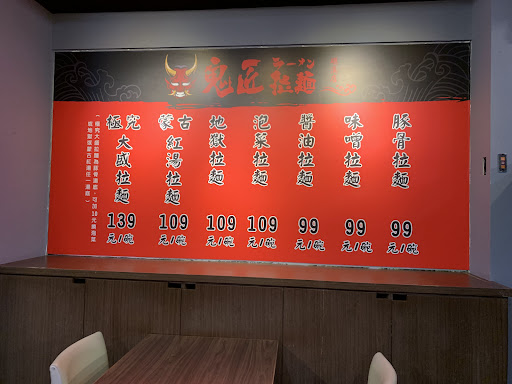 鬼匠
ラーメン
拉麵
豚骨拉麵
99
元/碗
味噌拉麵
99
元/碗
醬油拉麵
99
元/碗
泡菜拉麵
109
元/碗
地獄拉麵
109
元/碗
蒙古紅湯拉麵
109
元/碗
極究大盛拉麵
139
元/碗